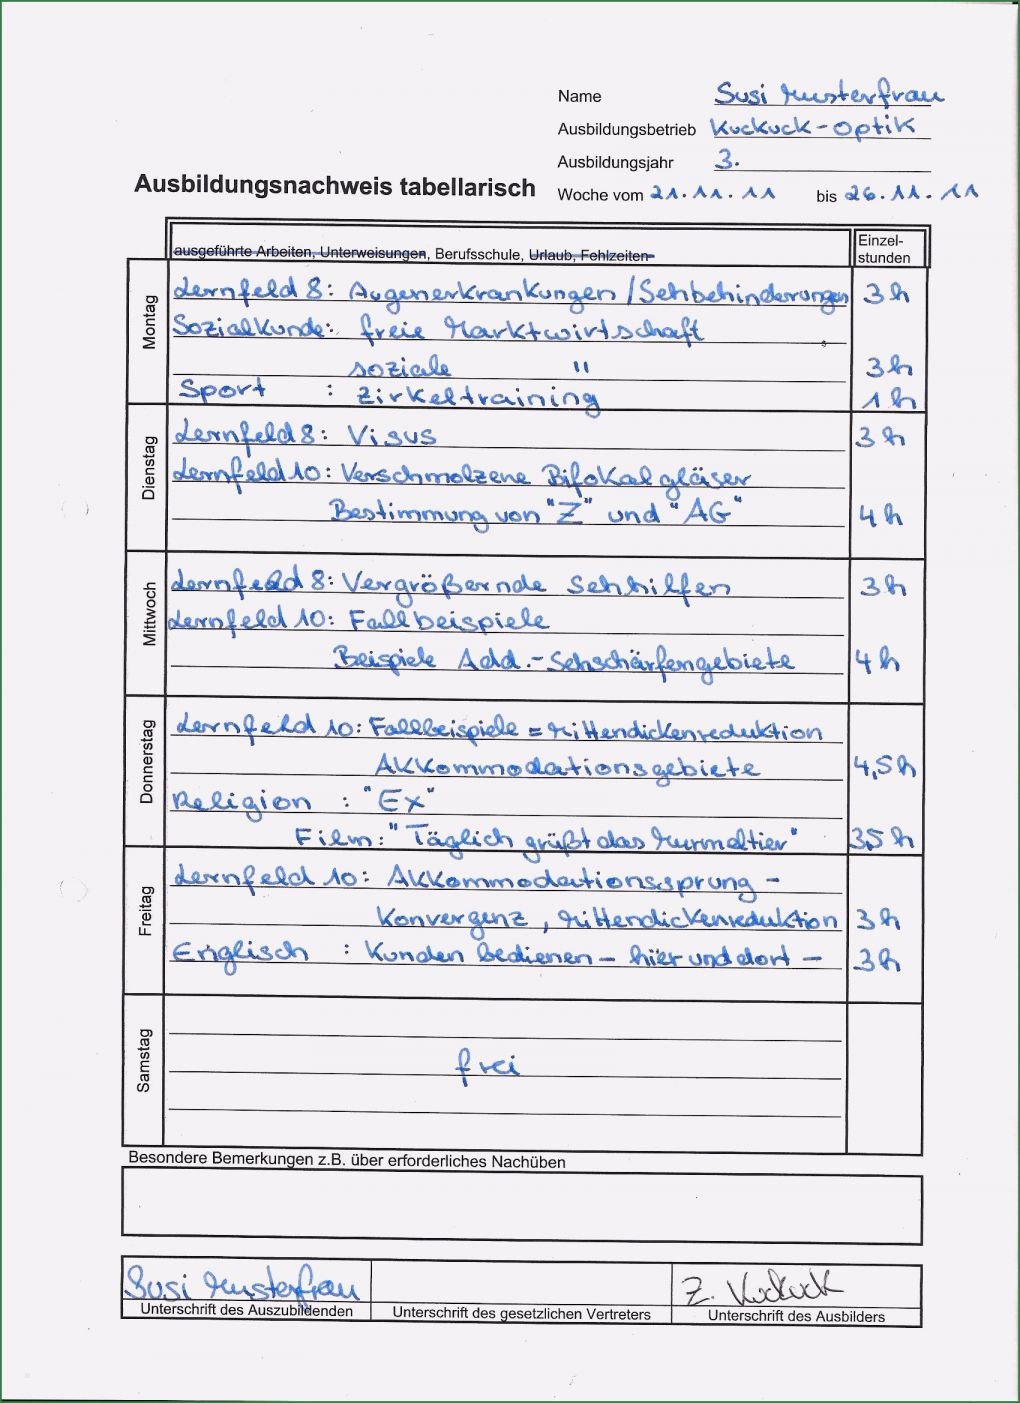 Name Susi Musterfrau
Ausbildungsbetrieb Kuckuck-Optik
Ausbildungsjahr 3.
Ausbildungsnachweis tabellarisch
Woche vom 21.11.11 bis 26.11.11
ausgeführte Arbeiten, Unterweisungen, Berufsschule, Urlaub, Fehlzeiten
Einzel-
stunden
Montag
Lernfeld 8: Augenerkrankungen/Sehbehinderungen 3h
Sozialkunde: freie Marktwirtschaft
soziale " 3h
Sport : Zirkeltraining 1h
Dienstag
Lernfeld 8: Visus 3h
Lernfeld 10: Verschmolzene Bifokalgläser
Bestimmung von "Z" und "AG" 4h
Mittwoch
Lernfeld 8: Vergrößernde Sehhilfen 3h
Lernfeld 10: Fallbeispiele
Beispiele Add.-Sehschärfengebiete 4h
Donnerstag
Lernfeld 10: Fallbeispiele = Mittendickenreduktion
Akkommodationsgebiete 4,5h
Religion : "Ex"
Film: "Täglich grüßt das Murmeltier" 3,5h
Freitag
Lernfeld 10: Akkommodationssprung -
Konvergenz, Mittendickenreduktion 3h
Englisch : Kunden bedienen - hier und dort - 3h
Samstag
frei
Besondere Bemerkungen z.B. über erforderliches Nachüben
Susi Musterfrau Z. Kuckuck
Unterschrift des Auszubildenden Unterschrift des gesetzlichen Vertreters Unterschrift des Ausbilders